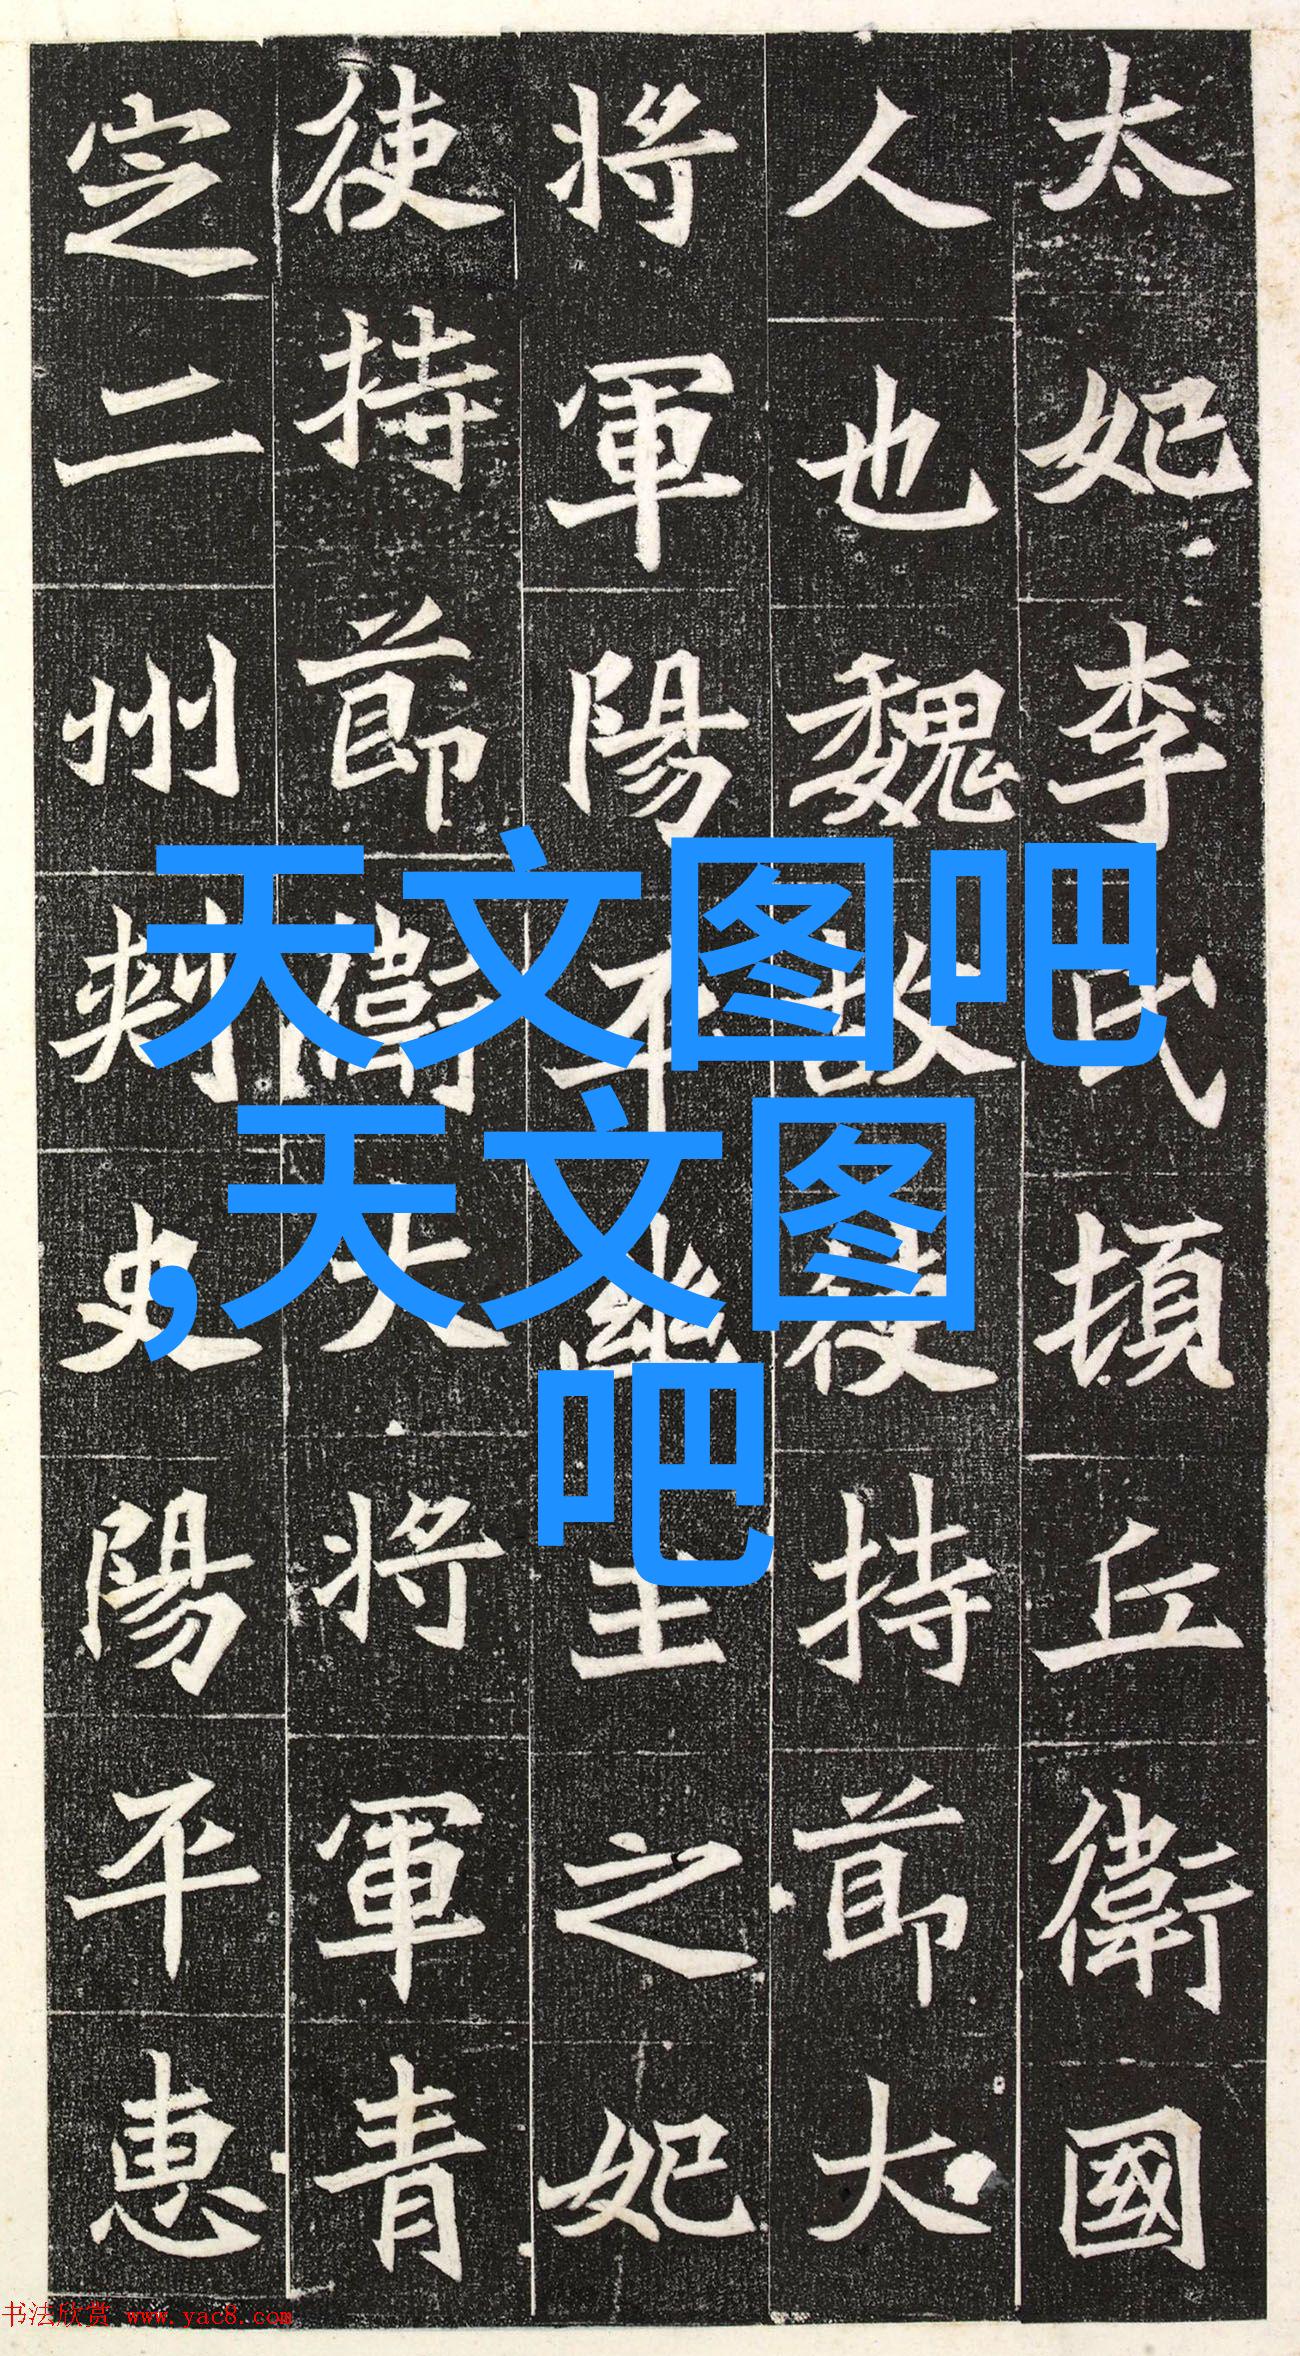 太妃李氏頓丘衛國
人也魏故使持節大
將軍陽平幽王之妃
使持節衛大將軍青
定二州刺史陽平惠
天文图吧
,天文图
吧
书法欣赏 www.yac8.com